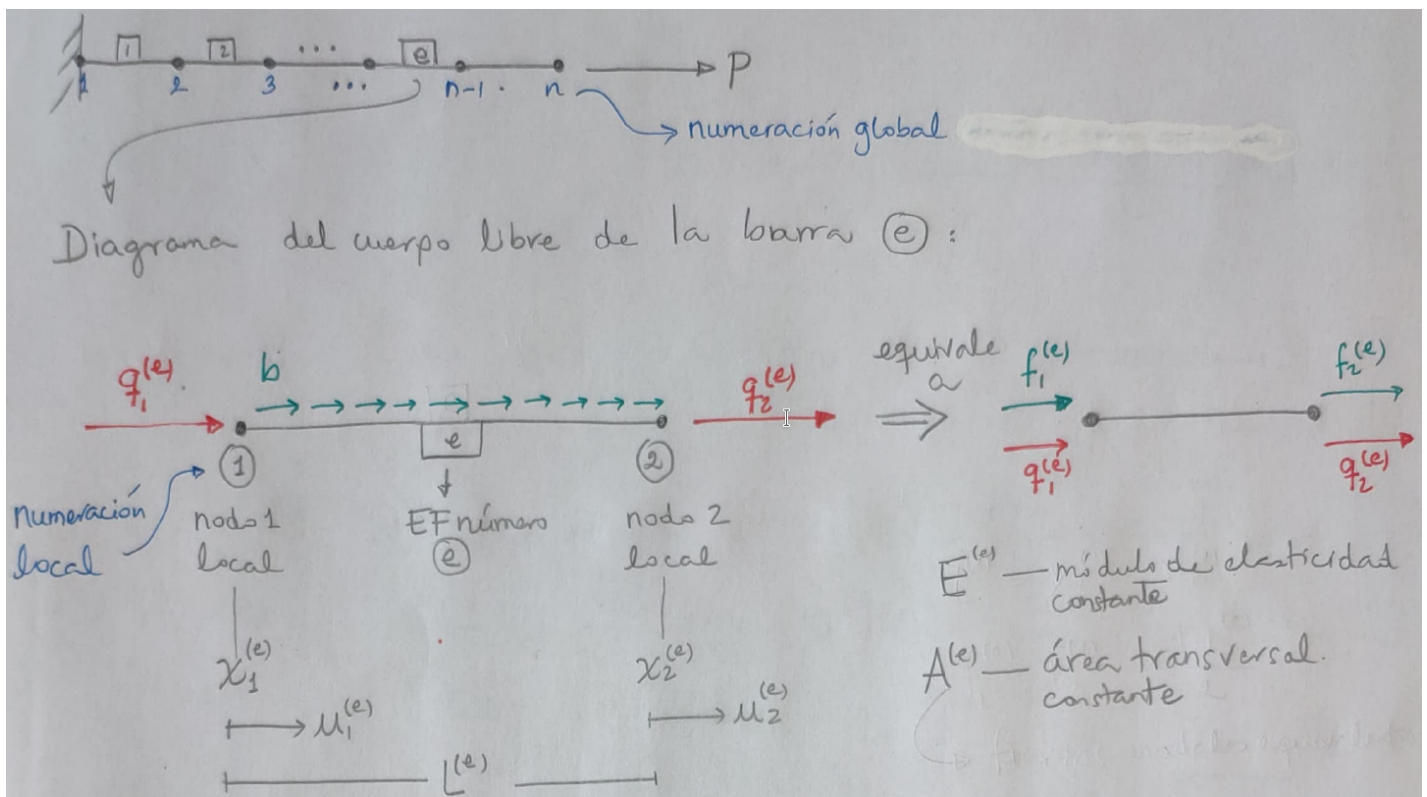 1 2 ... e
1 2 3 ... n-1 . n P
numeración global
Diagrama del cuerpo libre de la barra e :
q₁⁽ᵉ⁾ b q₂⁽ᵉ⁾ equivale a f₁⁽ᵉ⁾ f₂⁽ᵉ⁾
e
1 2 q₁⁽ᵉ⁾ q₂⁽ᵉ⁾
numeración local
nodo 1 local
EF número e
nodo 2 local
E⁽ᵉ⁾ — módulo de elasticidad
constante
x₁⁽ᵉ⁾ x₂⁽ᵉ⁾
A⁽ᵉ⁾ — área transversal.
constante
u₁⁽ᵉ⁾ u₂⁽ᵉ⁾
L⁽ᵉ⁾